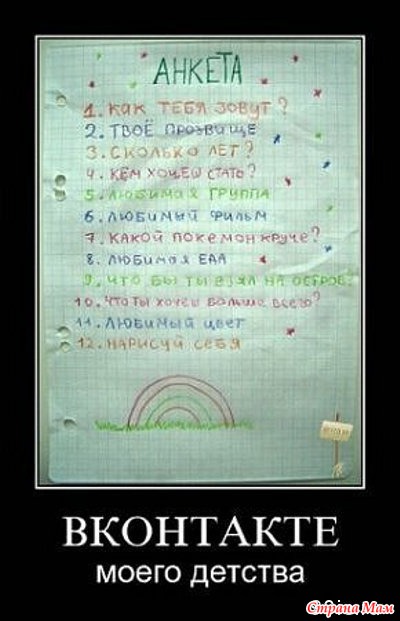 АНКЕТА
1. КАК ТЕБЯ ЗОВУТ?
2. ТВОЁ ПРОЗВИЩЕ
3. СКОЛЬКО ЛЕТ?
4. КЕМ ХОЧЕШ СТАТЬ?
5. ЛЮБИМАЯ ГРУППА
6. ЛЮБИМЫЙ ФИЛЬМ
7. КАКОЙ ПОКЕМОН КРУЧЕ?
8. ЛЮБИМАЯ ЕДА
9. ЧТО БЫ ТЫ ВЗЯЛ НА ОСТРОВ
10. ЧТО ТЫ ХОЧЕШ БОЛЬШЕ ВСЕГО?
11. ЛЮБИМЫЙ ЦВЕТ
12. НАРИСУЙ СЕБЯ
ВКОНТАКТЕ
моего детства
Страна Мам